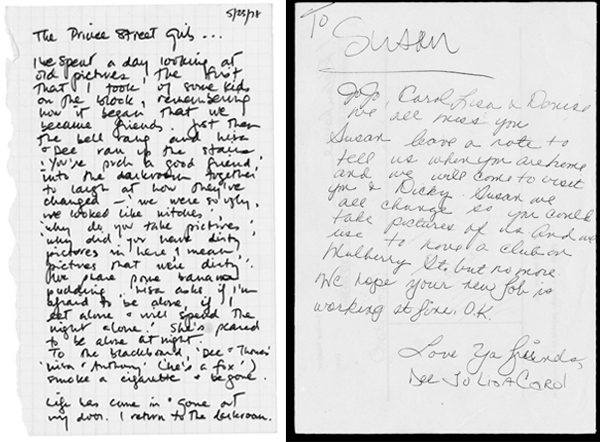 5/25/78
The Prince Street Girls ...
I've spent a day looking at
old pictures, the first
that I took of some kids
on the block, remembering
how it began that we
became friends. Just then
the bell rang and Lisa
+ Dee ran up the stairs
'You're such a good friend,'
into the darkroom together
to laugh at how they've
changed — 'we were so ugly,
we looked like witches,'
'why do you take pictures'
'why did you have dirty
pictures in here, I mean
pictures that were dirty'.
We share some banana
pudding. Lisa asks if I'm
afraid to be alone, if I
eat alone + will spend the
night alone. She's scared
to be alone at night.
To the blackboard, 'Dee + Thomas'
'Lisa + Anthony' ('he's a fox')
smoke a cigarette + begone.
Life has come in + gone out
my door. I return to the darkroom.
To
Susan
JoJo, Carol, Lisa & Denise
We all miss you
Susan leave a note to
tell us when you are home
and we will come to visit
you & Dicky. Susan we
all change so you could
take pictures of us and we
use to have a club on
Mulberry St, but no more
We hope your new job is
working at fine, O.K.
Love Ya Friends,
Dee JoJo Lisa Carol